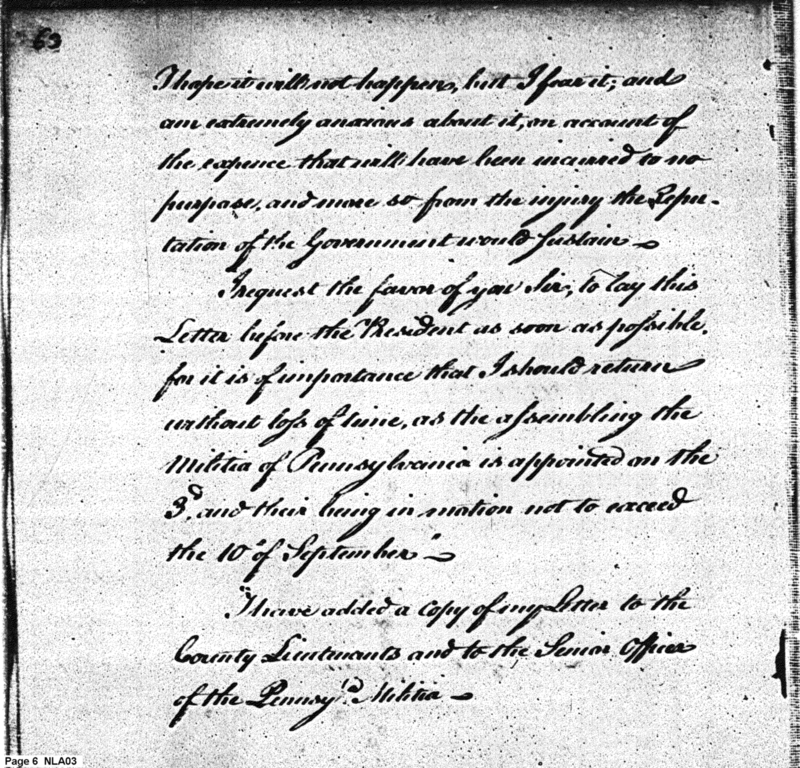 63
I hope it will not happen, but I fear it; and
am extremely anxious about it, on account of
the expence that will have been incurred to no
purpose, and more so from the injury the Repu-
tation of the Government would sustain —
I request the favor of you Sir, to lay this
Letter before the President as soon as possible,
for it is of importance that I should return
without loss of time, as the assembling the
Militia of Pennsylvania is appointed on the
3d. and their being in motion not to exceed
the 10th of September" —
"I have added a copy of my Letter to the
County Lieutenants and to the Senior Officer
of the Pennsyla. Militia —
Page 6 NLA03